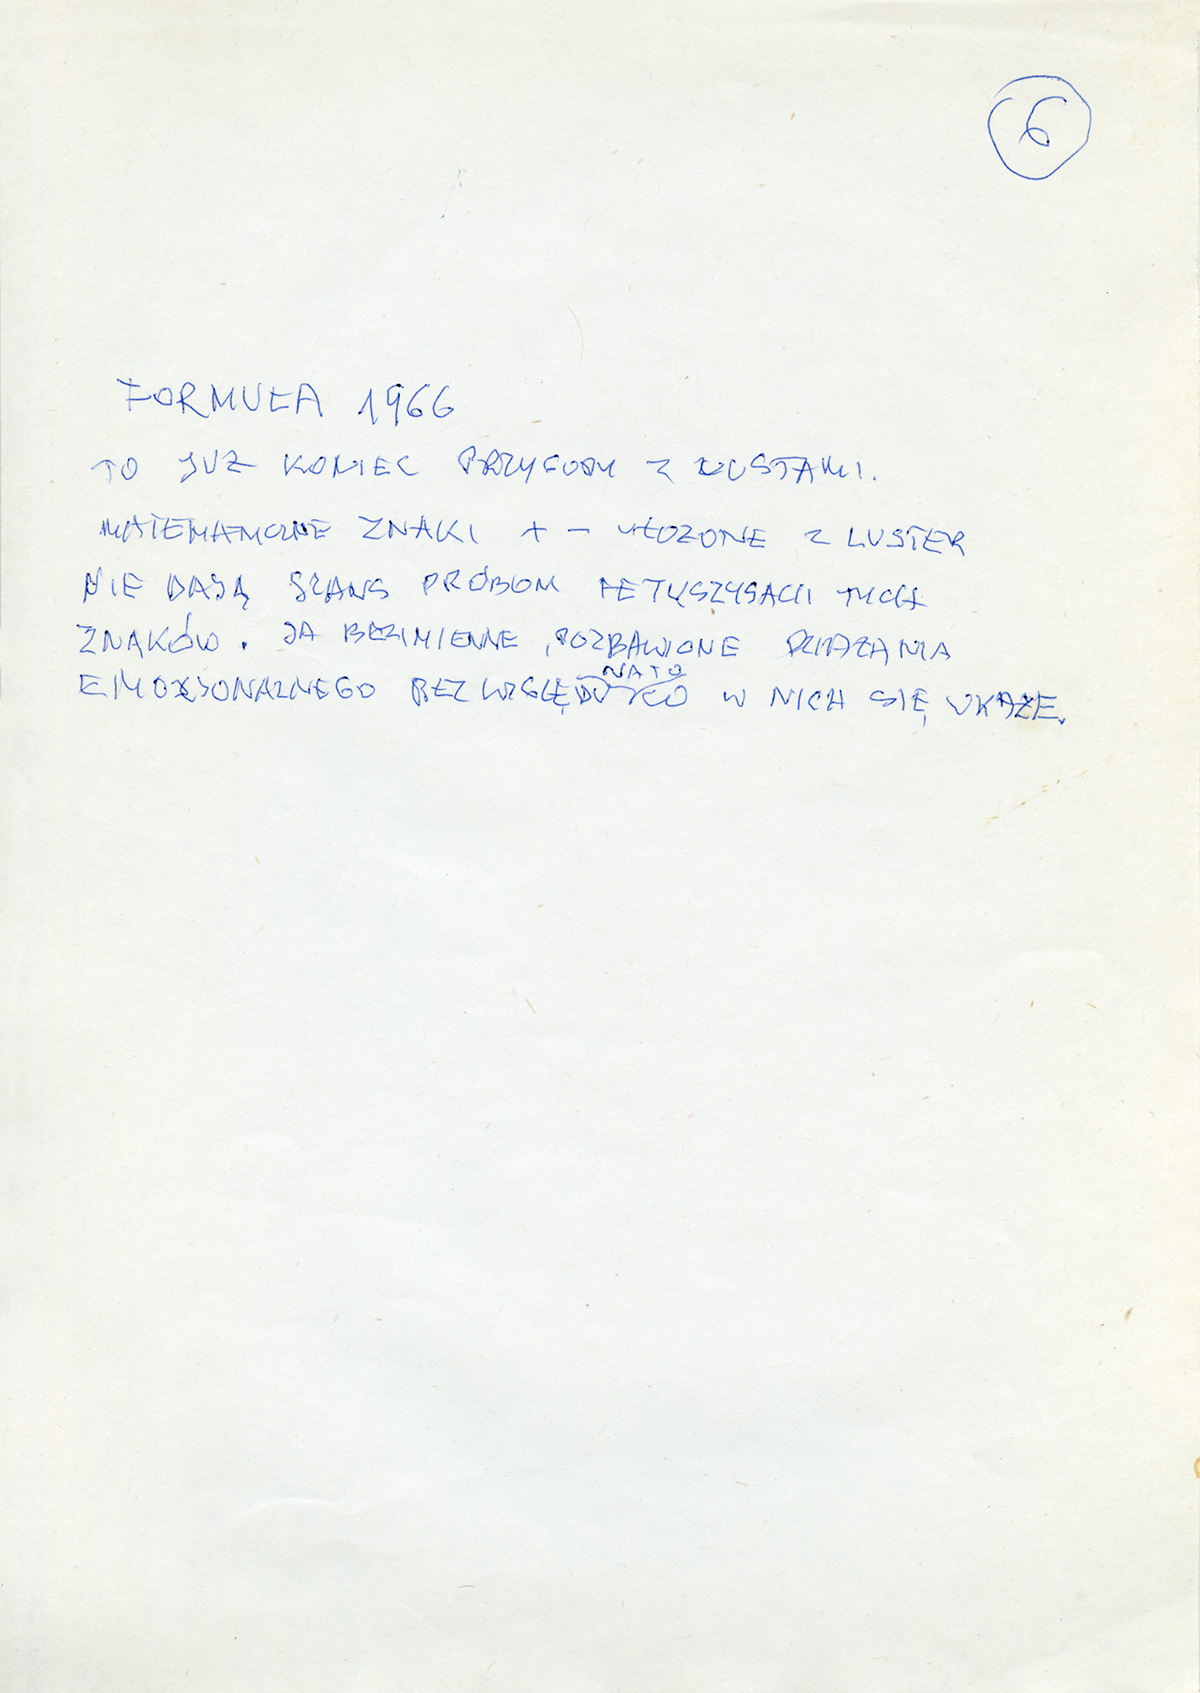 6
FORMUŁA 1966
TO JUŻ KONIEC PRZYGODY Z LUSTAMI.
MATEMATYCZNE ZNAKI + – UŁOŻONE Z LUSTER
NIE DAJĄ SZANS PRÓBOM FETYSZYSACJI TYCH
ZNAKÓW. SĄ BEZIMIENNE, POZBAWIONE DZIAŁANIA
NATO
EMOCJONALNEGO BEZ WZGLĘDU CO W NICH SIĘ UKAŻE.